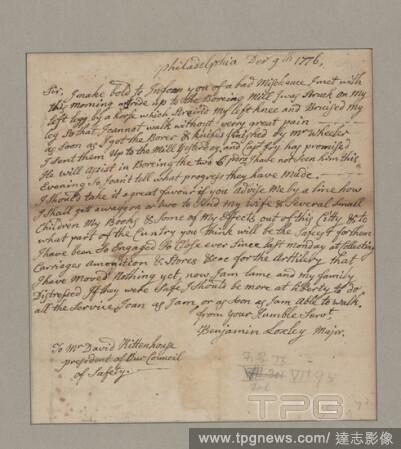 Philadelphia Decr 9th 1776,
Sir, I make bold to Inform you of a bad Mischance I met with
this morning a ride up to the Boreing Mill I was Struck on my
left Legg by a horse which Strain'd My left knee and Bruised My
leg So that I cannot walk without very great pain
as Soon as I got the Borer & knives finished by Mr Wheeler
I Sent them Up to the Mill Yesterday, and Capt has promised
He will assist in Boreing the two 6 I have not Seen him this
Evening So I can't tell what progress they have Made.
I Should take it a great favour if you advise Me by a line how
I Shall get a waggon or two to Send my wife & Several Small
Children My Books & Some of My Effects out of this City & to
what part of the Cuntry you think will be the Safest for them
I have been So Engaged So Close ever Since last monday at Collecting
Carriages Amonition & Stores &c for the Artilery that
I have Moved Nothing yet, now I am lame and my family
Distressed If they were Safe I Should be more at liberty to do
all the Service I can as I am or as soon as I am Able to walk.
from Your Humble Servt.
Benjamin Loxley Major.
To Mr David Rittenhouse
president of Our Council
of Safety.
TPG
www.tpgnews.com / 達志影像